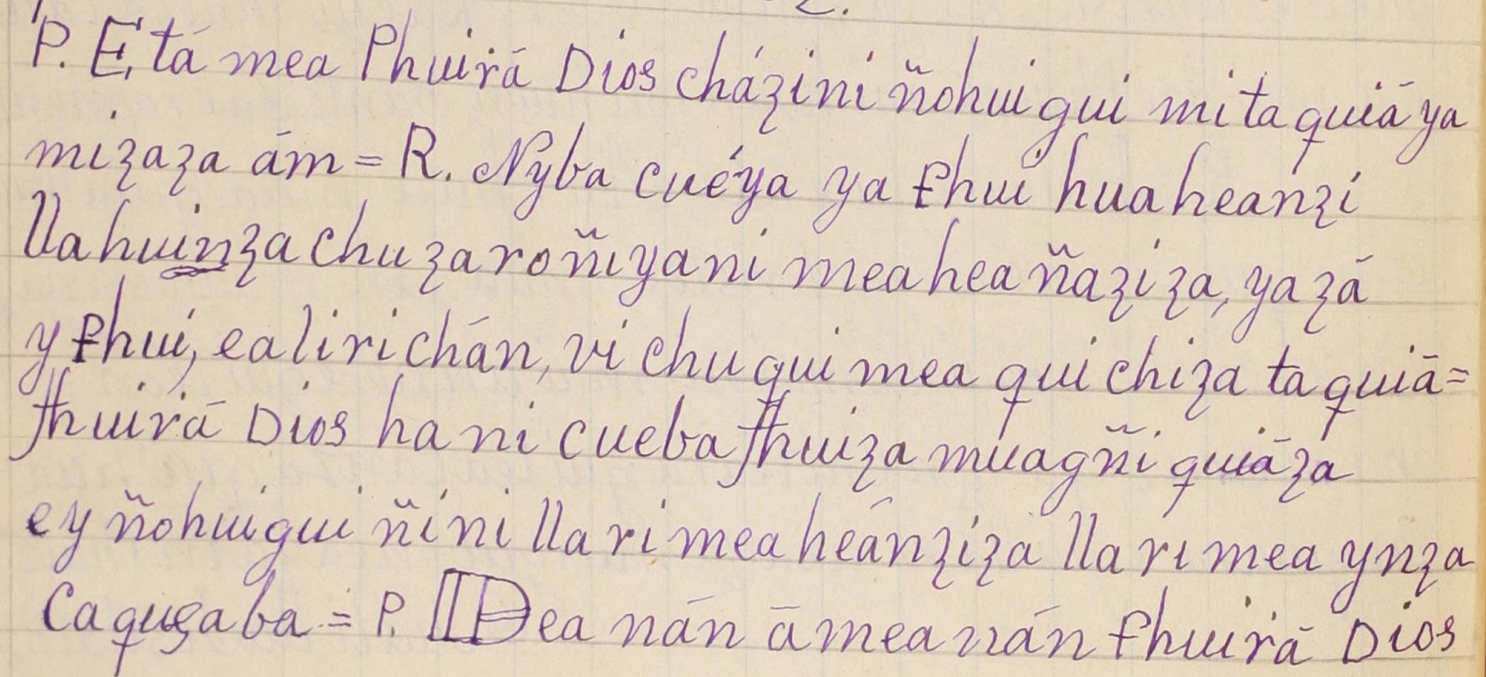 P. E, tá mea Phuirā Dios cházini ñohui gui mi ta quiā ya
mizaza ām = R. Nyba cuéya ya fhui hua heanzi
lla huinza chu zaroñi ya ni mea hea ñaziza, ya zā
y fhui, ea liri chān, vi chu qui mea qui chiza ta quiā=
fhuirā Dios ha ni cueba fhuiza muagñi quiāza
ey ñohui gui ñini lla ri mea heānziza lla ri mea ynza
Caquҫaba = P. Dea nán ā mea nán fhuirā Dios